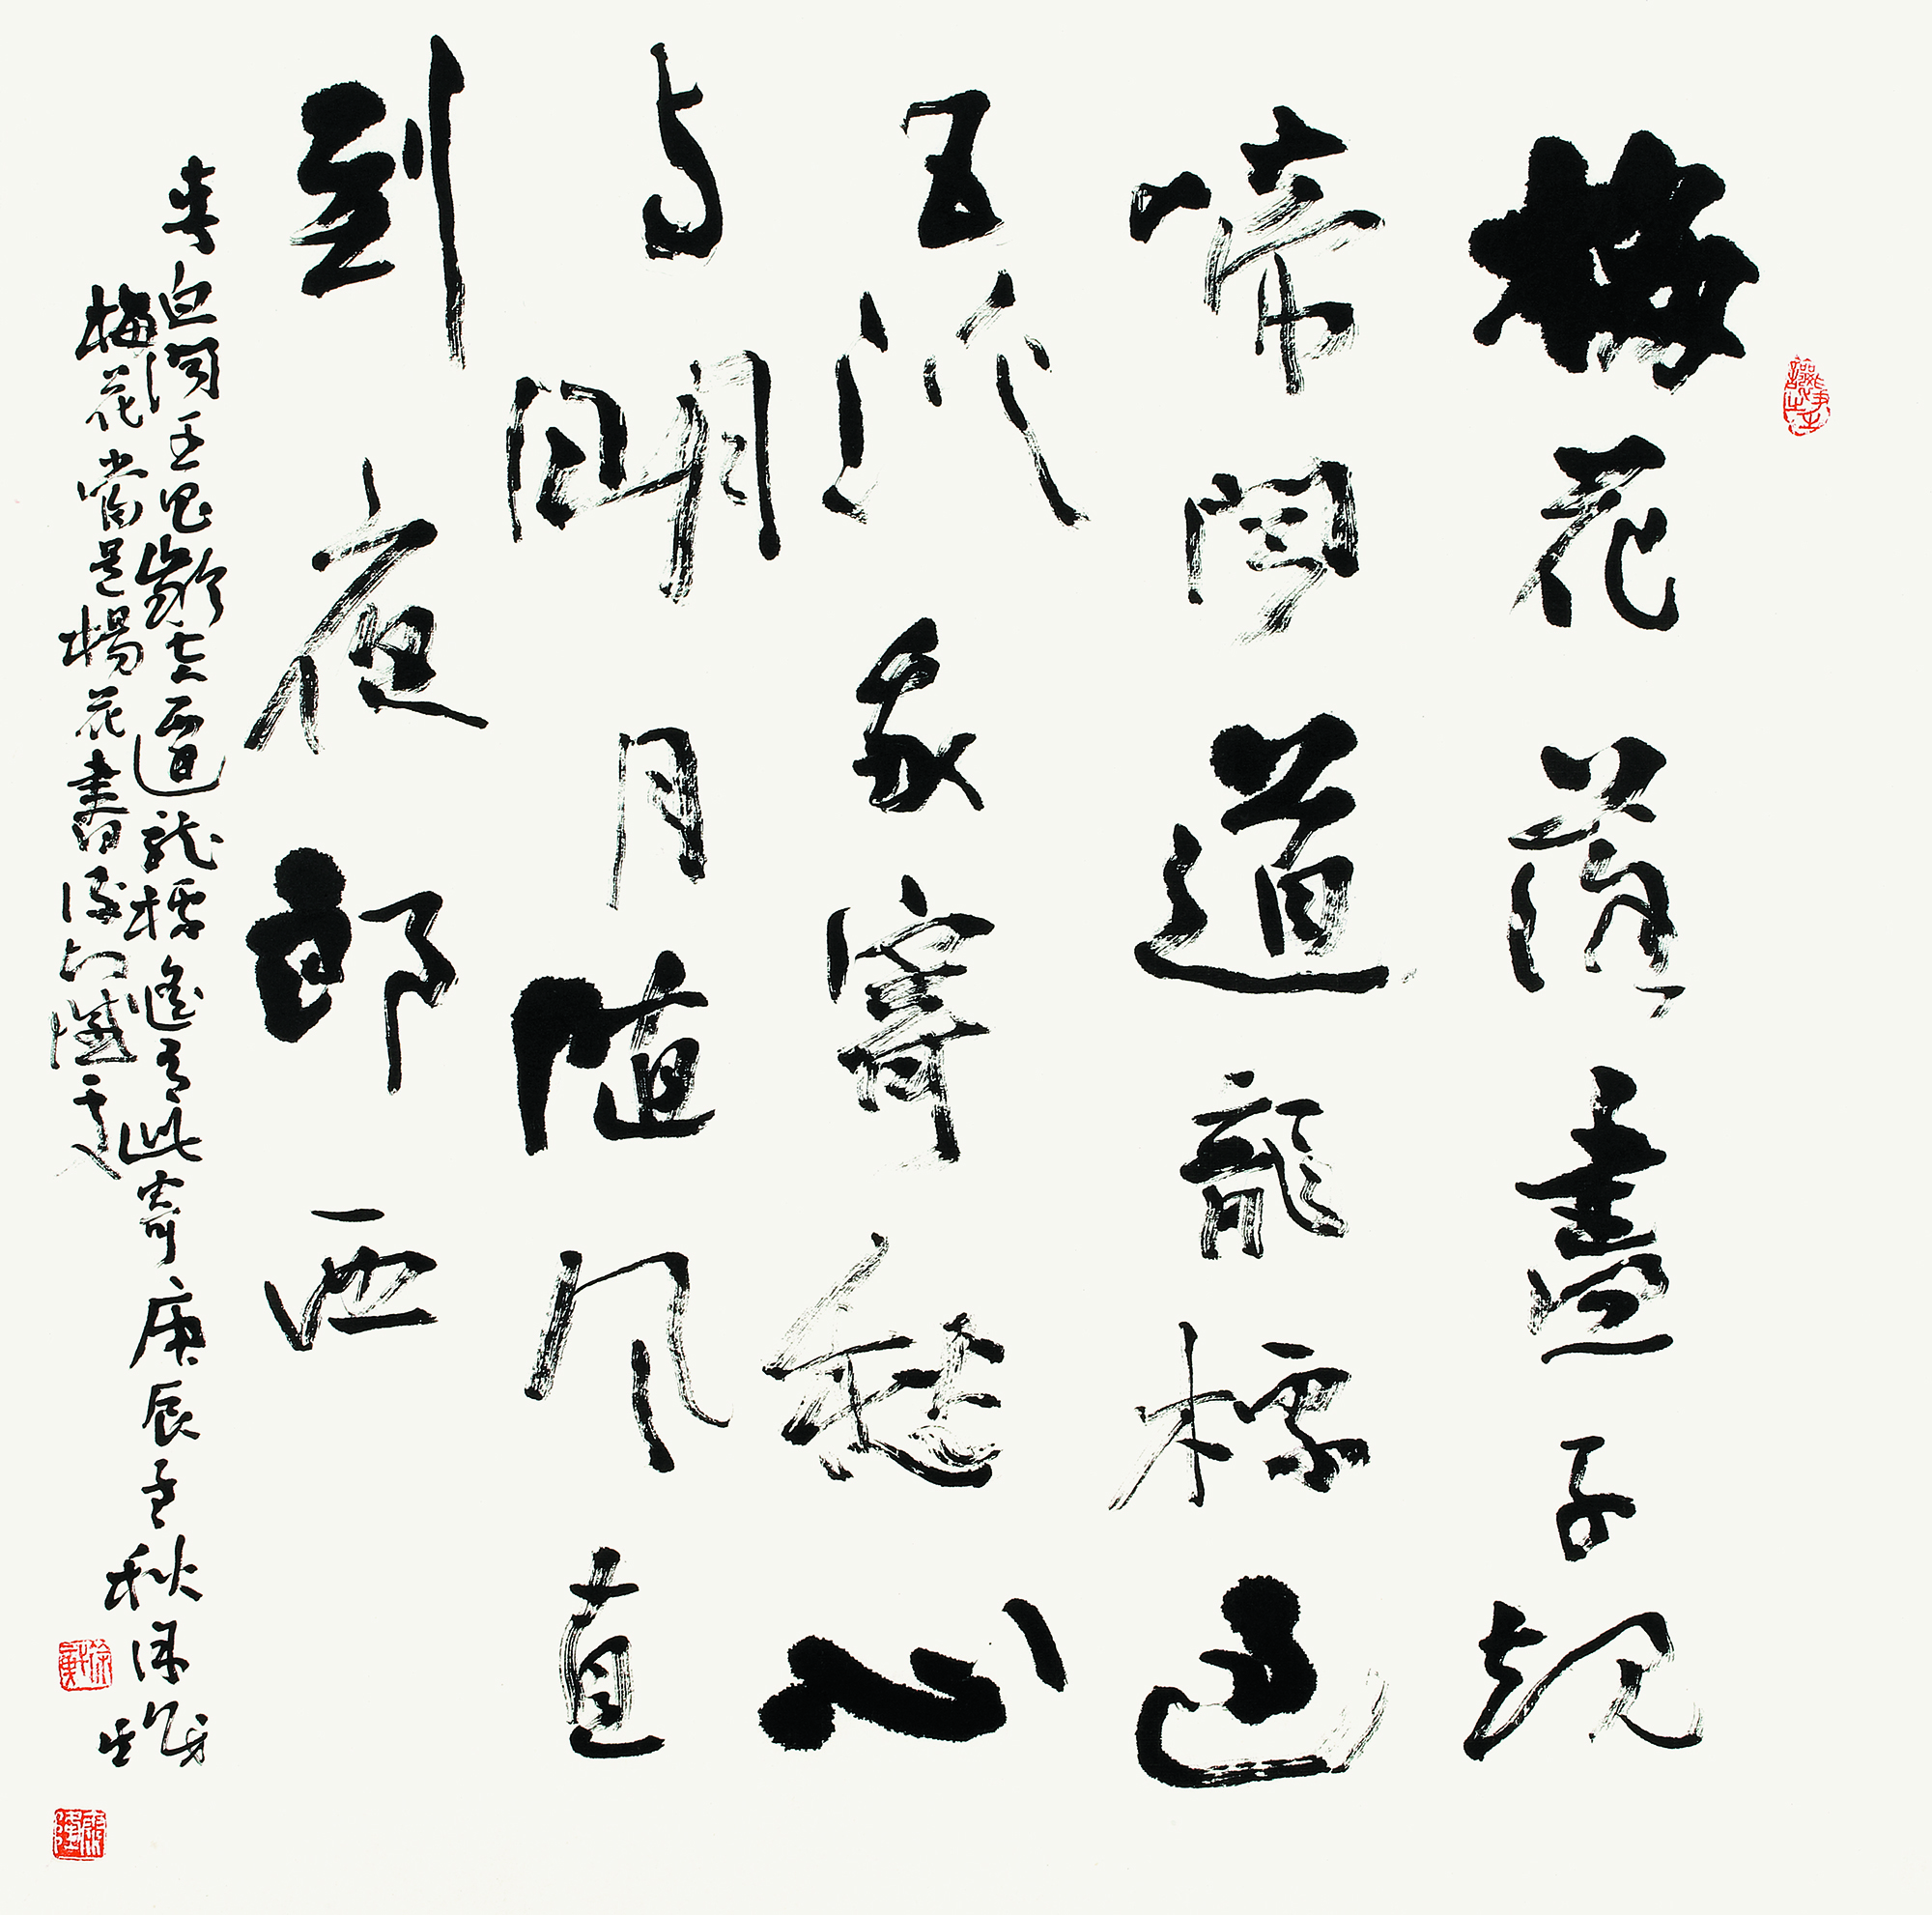 梅花落盡子規
啼聞道龍標過
五溪我寄愁心
与明月月随风直
到夜郎西
李白聞王昌齡左遷龍標遙有此寄庚辰之秋
梅花當是楊花書後知憾更